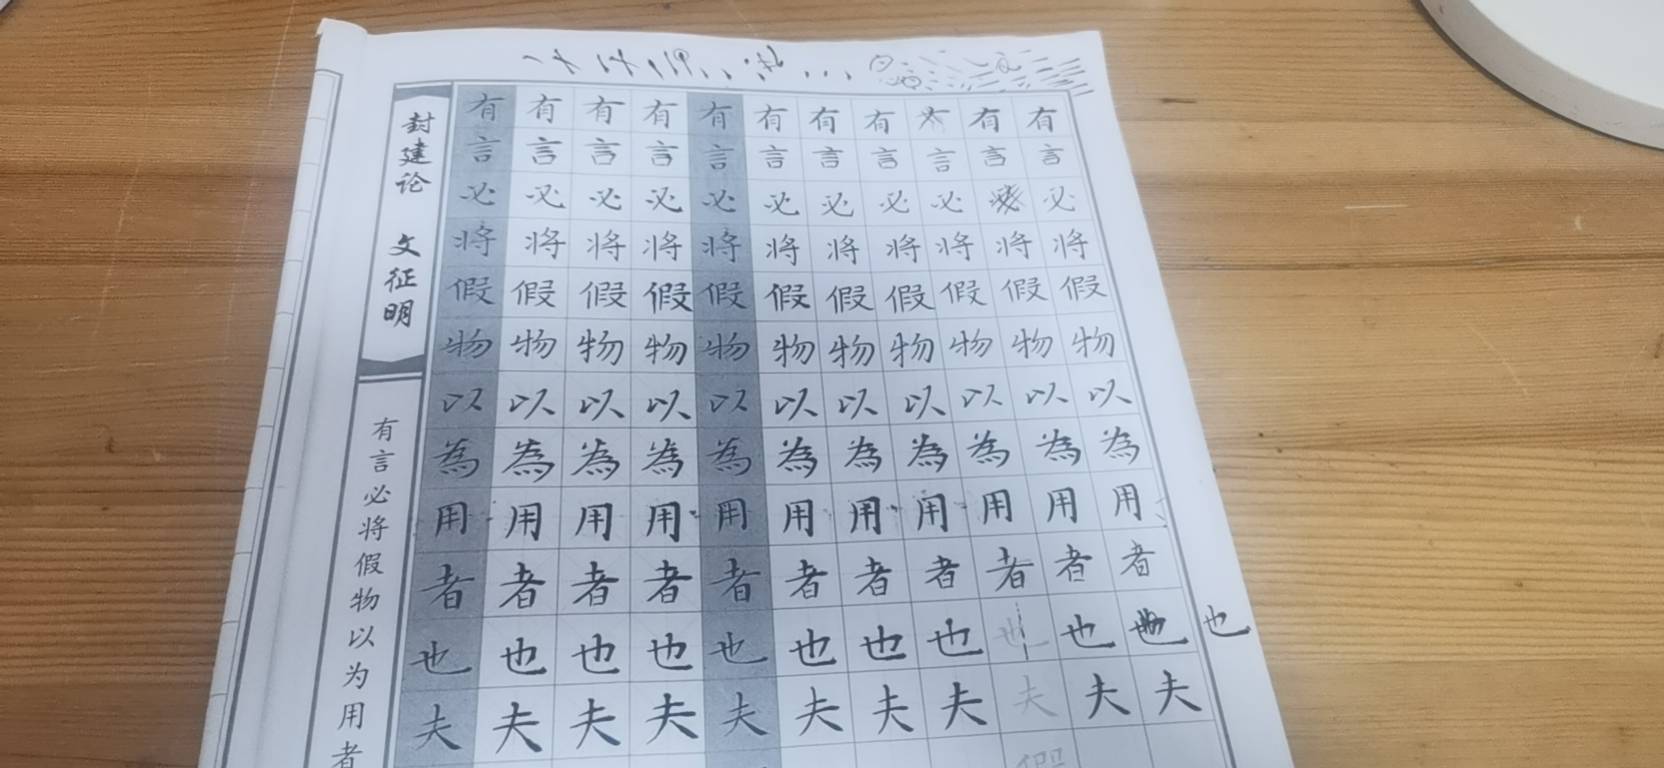 封建论 文征明
有言必将假物以为用者
有有有有有有有有有有
言言言言言言言言言言言
必必必必必必必必必必
将将将将将将将将将将将
假假假假假假假假假假假
物物物物物物物物物物物
以以以以以以以以以以以
為為為為為為為為為為為
用用用用用用用用用用用
者者者者者者者者者者者
也也也也也也也也也也也
夫夫夫夫夫夫夫夫夫夫夫
假